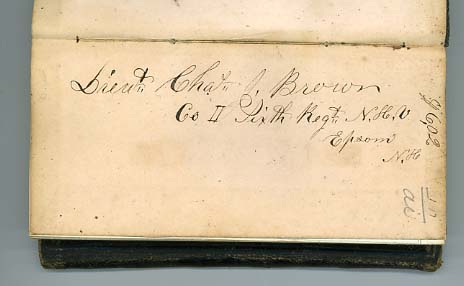 Lieut. Chas. J. Brown
Co I Sixth Regt. N.H.V
Epsom
N.H